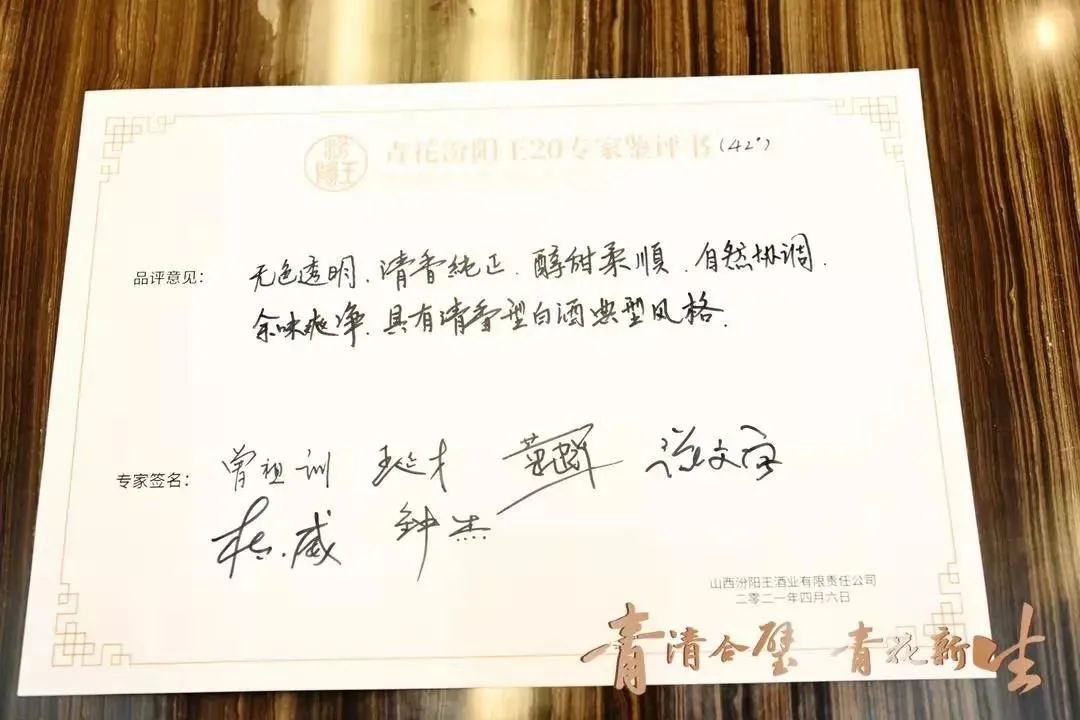 汾陽王
青花汾阳王20专家鉴评书(42°)
品评意见: 无色透明、清香純正、醇甜柔順、自然协调、
余味爽净、具有清香型白酒典型风格.
专家签名: 曾祖训 王延才
杜威 钟杰
山西汾阳王酒业有限责任公司
二零二一年四月六日
青清合璧 青花新生